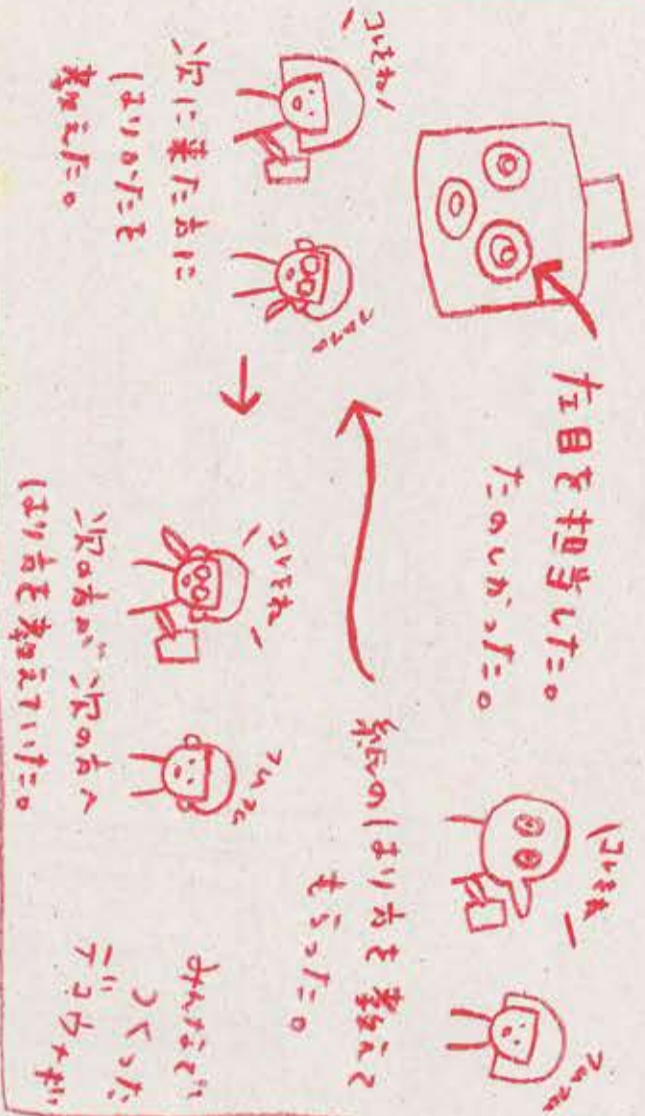 左目を担当した。
たのしかった。
コレをね
フムフム
紙のはり方を教えて
もらった。
コレをね
フムフム
次に来た方に
はりかたを
教えた。
コレをね
フムフム
次の方が次の方へ
はり方を教えていた。
みんなで
つくった